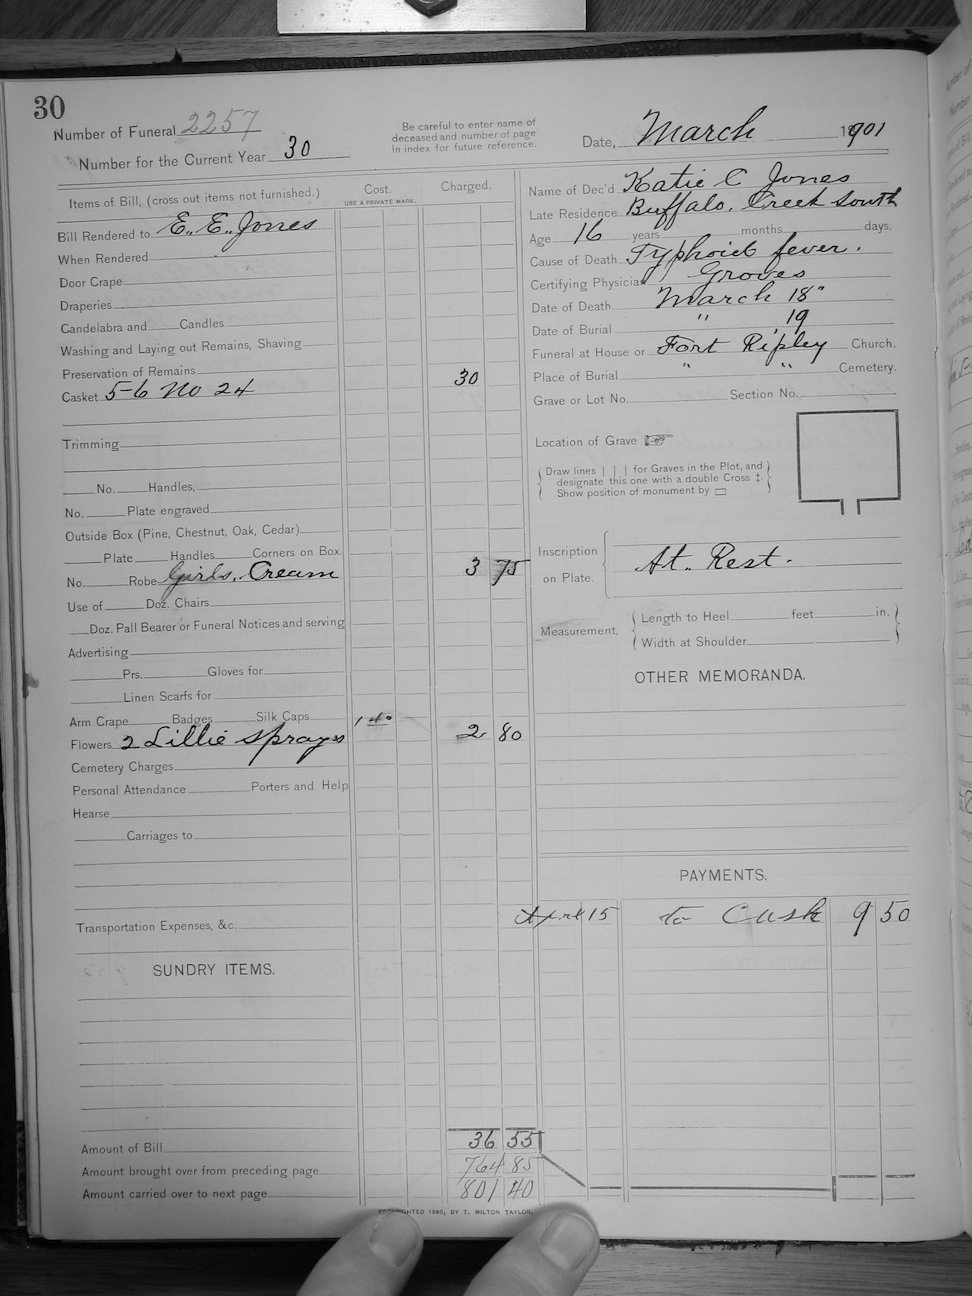 30
Number of Funeral 2257
Number for the Current Year 30
Be careful to enter name of
deceased and number of page
in index for future reference.
Date, March 1901
Items of Bill, (cross out items not furnished.)
Cost.
USE A PRIVATE MARK.
Charged.
Bill Rendered to E. E. Jones
When Rendered
Door Crape
Draperies
Candelabra and Candles
Washing and Laying out Remains, Shaving
Preservation of Remains
Casket 5-6 No 24 30
Trimming
No. Handles,
No. Plate engraved
Outside Box (Pine, Chestnut, Oak, Cedar)
Plate Handles Corners on Box.
No. Robe Girls, Cream 3 75
Use of Doz. Chairs
Doz. Pall Bearer or Funeral Notices and serving
Advertising
Prs. Gloves for
Linen Scarfs for
Arm Crape Badges Silk Caps
Flowers 2 Lillie sprays 1 40 2 80
Cemetery Charges
Personal Attendance Porters and Help
Hearse
Carriages to
Transportation Expenses, &c.
SUNDRY ITEMS.
Amount of Bill 36 55
Amount brought over from preceding page 764 85
Amount carried over to next page 801 40
Name of Dec'd Katie C Jones
Late Residence Buffalo, Creek South
Age 16 years months days.
Cause of Death Typhoid fever.
Certifying Physician Groves
Date of Death March 18"
Date of Burial " 19
Funeral at House or Fort Ripley Church.
Place of Burial " " Cemetery.
Grave or Lot No. Section No.
Location of Grave ☞
Draw lines | | | for Graves in the Plot, and
designate this one with a double Cross ‡.
Show position of monument by ▭
Inscription
on Plate.
At. Rest.
Measurement,
Length to Heel feet in.
Width at Shoulder
OTHER MEMORANDA.
PAYMENTS.
April 15 to Cash 9 50
COPYRIGHTED 1890, BY T. MILTON TAYLOR.